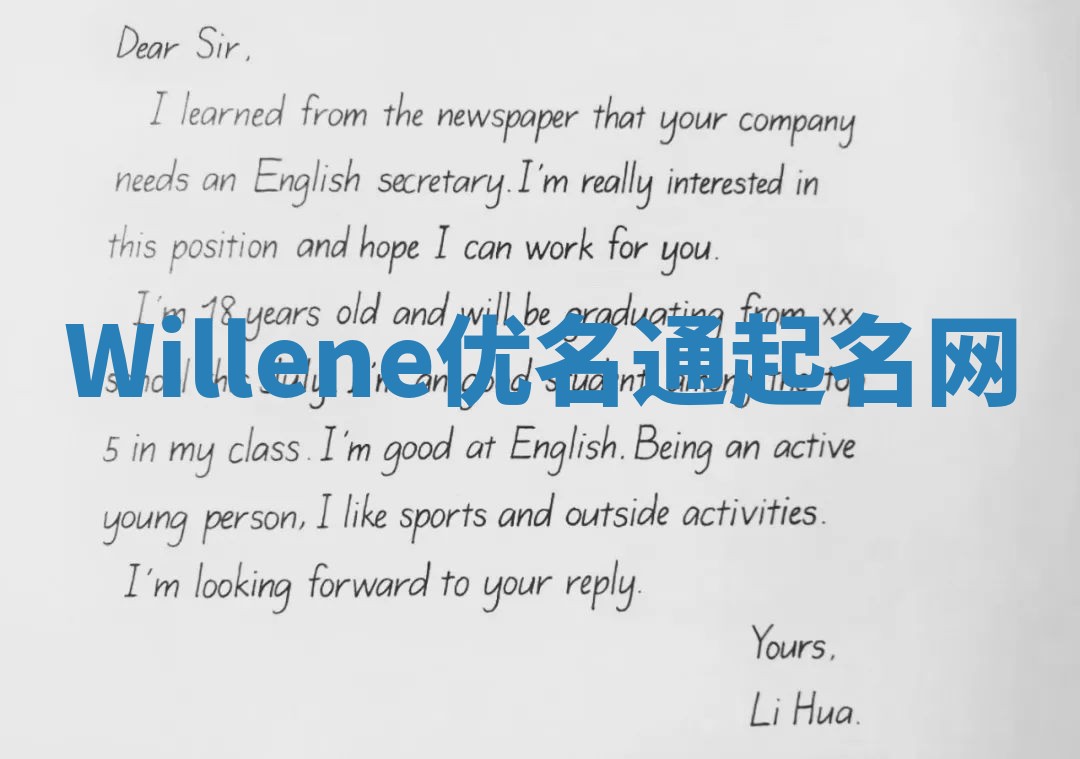 Dear Sir,
I learned from the newspaper that your company
needs an English secretary. I'm really interested in
this position and hope I can work for you.
I'm 18 years old and will be graduating from xx
Willene优名通起名网
school this July. I'm an good student among the top
5 in my class. I'm good at English. Being an active
young person, I like sports and outside activities.
I'm looking forward to your reply.
Yours,
Li Hua.